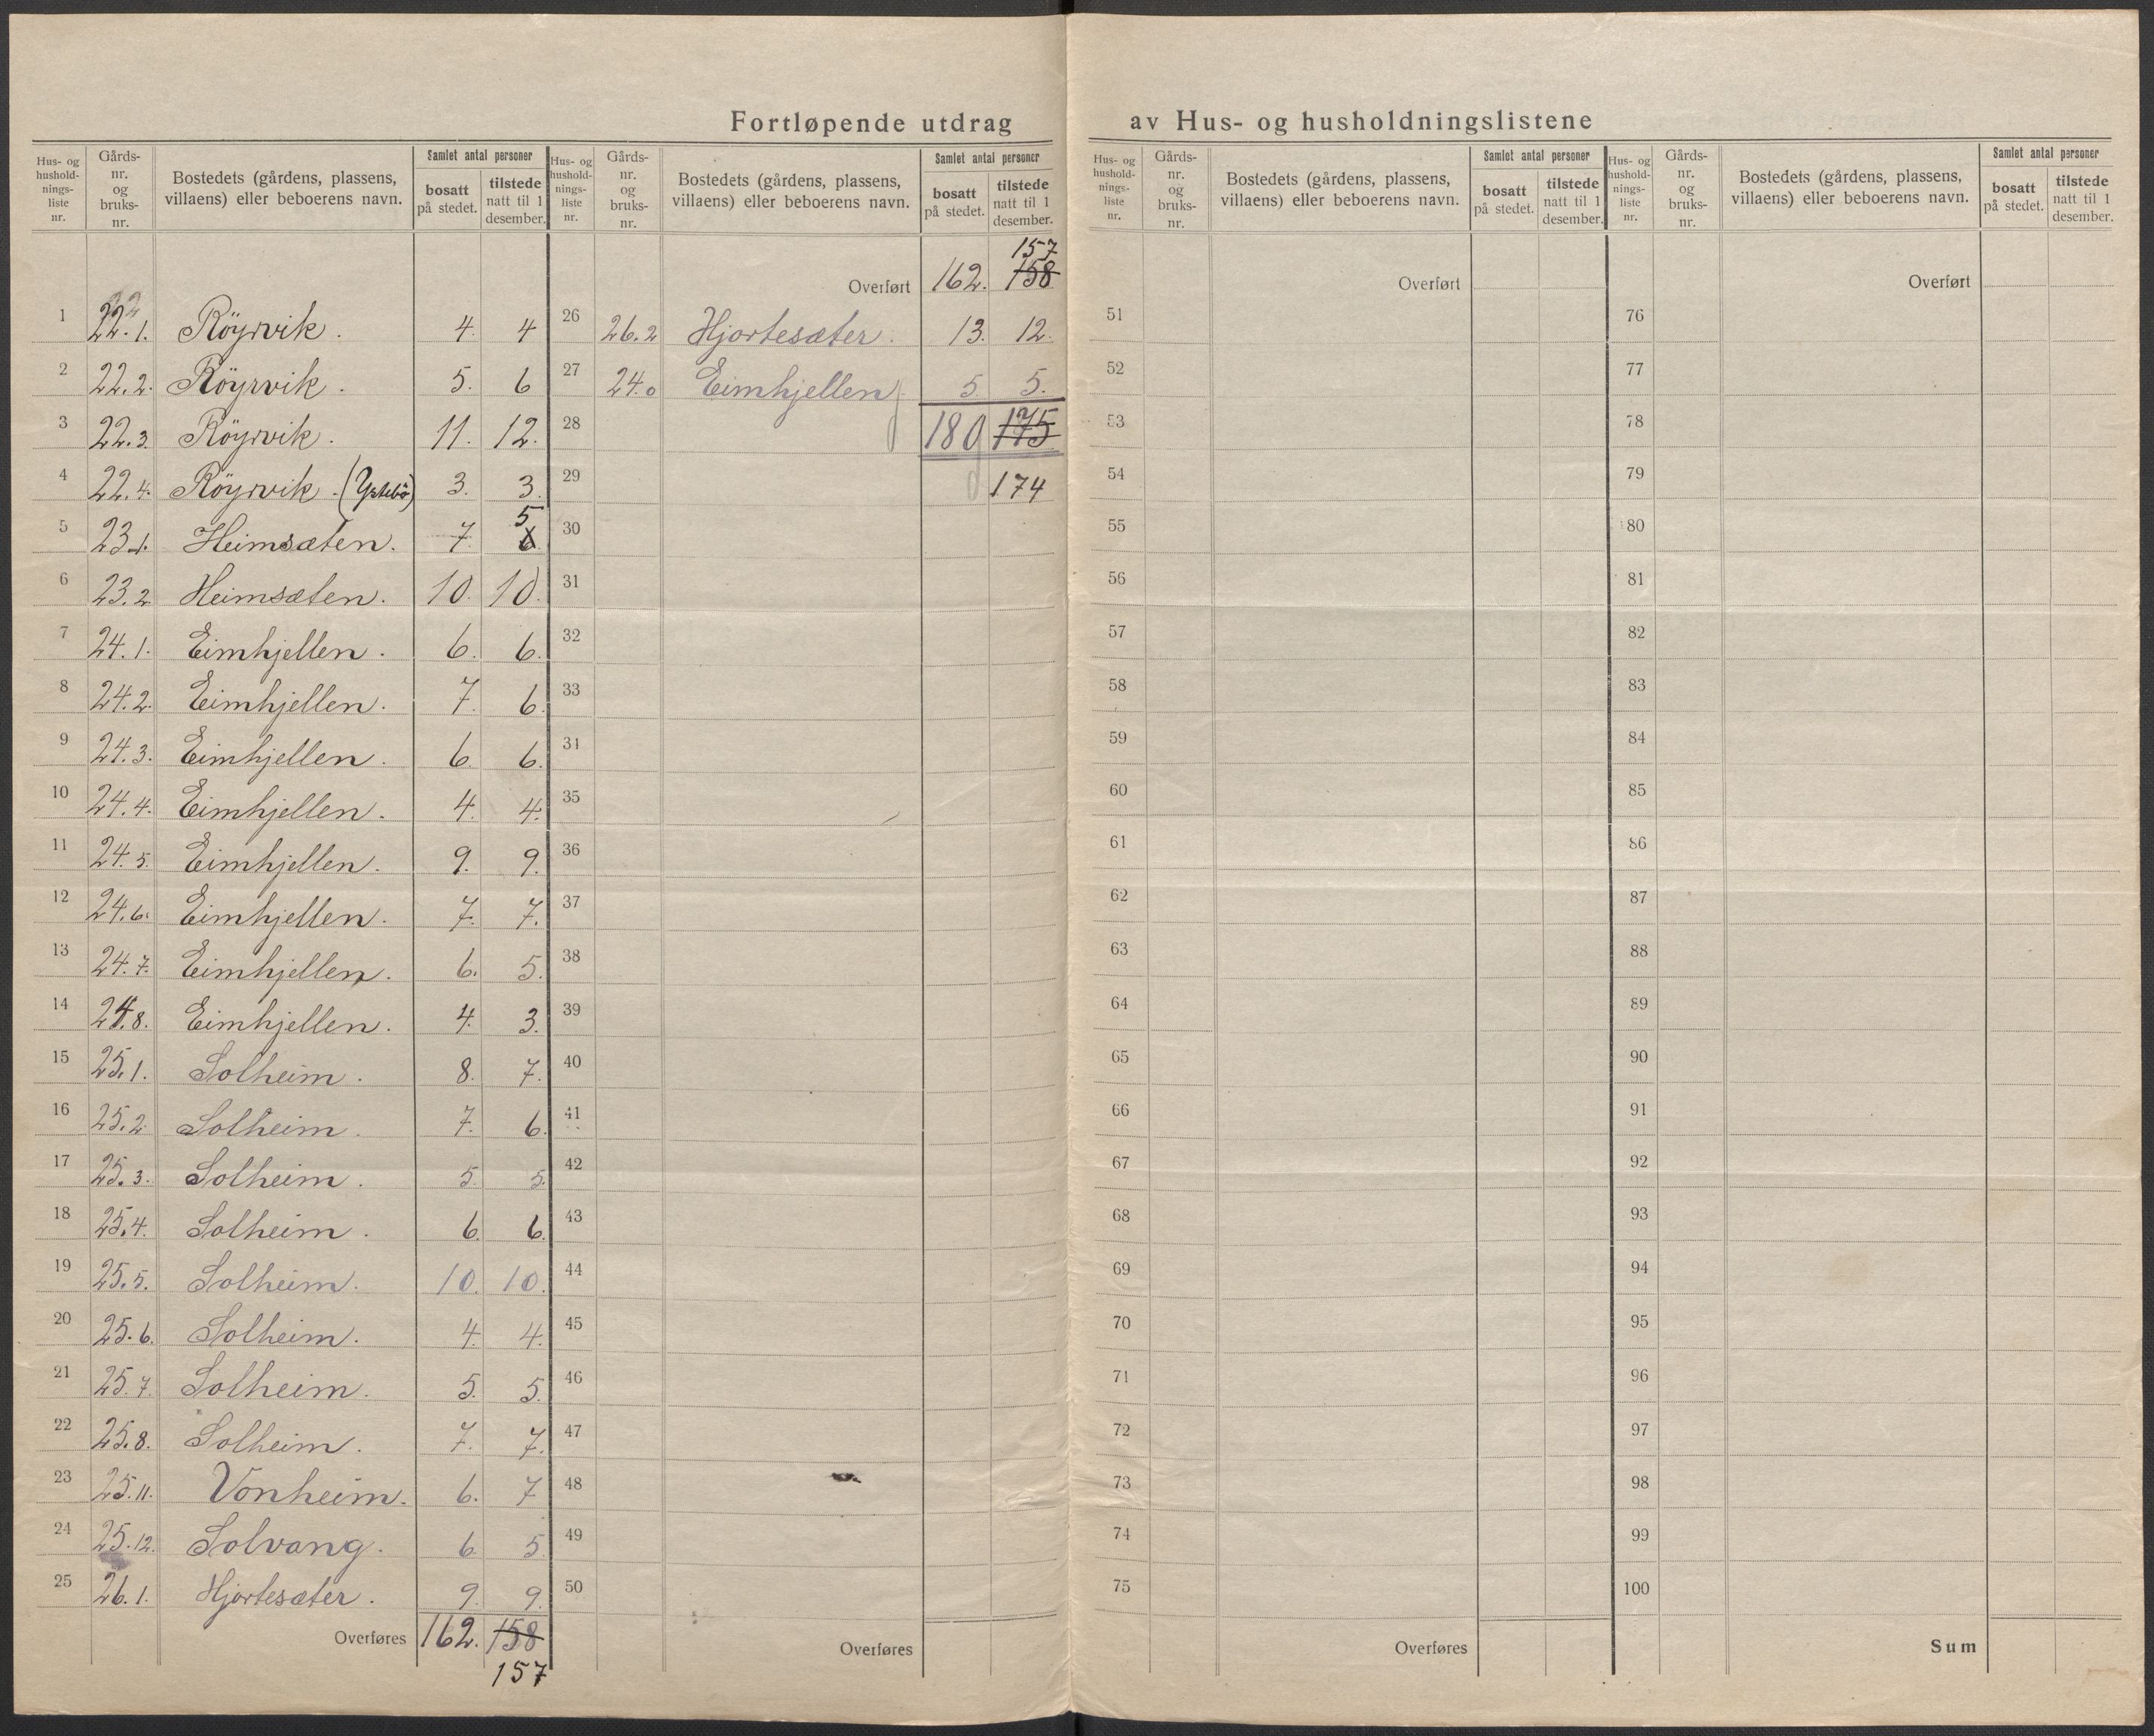 Fortløpende utdrag av Hus- og husholdningslistene
Hus- og hushold-nings-liste nr. | Gårds-nr. og bruks-nr. | Bostedets (gårdens, plassens, villaens) eller beboerens navn. | Samlet antal personer | bosatt på stedet. | tilstede natt til 1 desember.
1 22.1. Röyrvik. 4. 4
2 22.2. Röyrvik. 5. 6
3 22.3. Röyrvik. 11. 12.
4 22.4. Röyrvik. (Ystebö) 3. 3.
5 23.1. Heimsæten. 7 6 5
6 23.2 Heimsæten. 10. 10.
7 24.1. Eimhjellen. 6. 6.
8 24.2. Eimhjellen. 7. 6.
9 24.3. Eimhjellen. 6. 6.
10 24.4. Eimhjellen. 4. 4.
11 24.5. Eimhjellen. 9. 9.
12 24.6. Eimhjellen. 7. 7.
13 24.7. Eimhjellen. 6. 5.
14 24.8. Eimhjellen. 4. 3.
15 25.1. Solheim. 8. 7.
16 25.2. Solheim. 7. 6.
17 25.3. Solheim. 5. 5.
18 25.4. Solheim. 6. 6.
19 25.5. Solheim. 10. 10.
20 25.6. Solheim. 4. 4.
21 25.7. Solheim. 5. 5.
22 25.8. Solheim. 7. 7.
23 25.11. Vonheim. 6. 7
24 25.12. Solvang. 6 5
25 26.1. Hjortesæter. 9. 9.
Overføres 162. 158
157
Hus- og hushold-nings-liste nr. | Gårds-nr. og bruks-nr. | Bostedets (gårdens, plassens, villaens) eller beboerens navn. | Samlet antal personer | bosatt på stedet. | tilstede natt til 1 desember.
157
Overført 162. 158
26 26.2 Hjortesæter. 13. 12.
27 24.0 Eimhjellen 5 5.
28 180 175
29 174
30
31
32
33
34
35
36
37
38
39
40
41
42
43
44
45
46
47
48
49
50
Overføres
Hus- og hushold-nings-liste nr. | Gårds-nr. og bruks-nr. | Bostedets (gårdens, plassens, villaens) eller beboerens navn. | Samlet antal personer | bosatt på stedet. | tilstede natt til 1 desember.
Overført
51
52
53
54
55
56
57
58
59
60
61
62
63
64
65
66
67
68
69
70
71
72
73
74
75
Overføres
Hus- og hushold-nings-liste nr. | Gårds-nr. og bruks-nr. | Bostedets (gårdens, plassens, villaens) eller beboerens navn. | Samlet antal personer | bosatt på stedet. | tilstede natt til 1 desember.
Overført
76
77
78
79
80
81
82
83
84
85
86
87
88
89
90
91
92
93
94
95
96
97
98
99
100
Sum